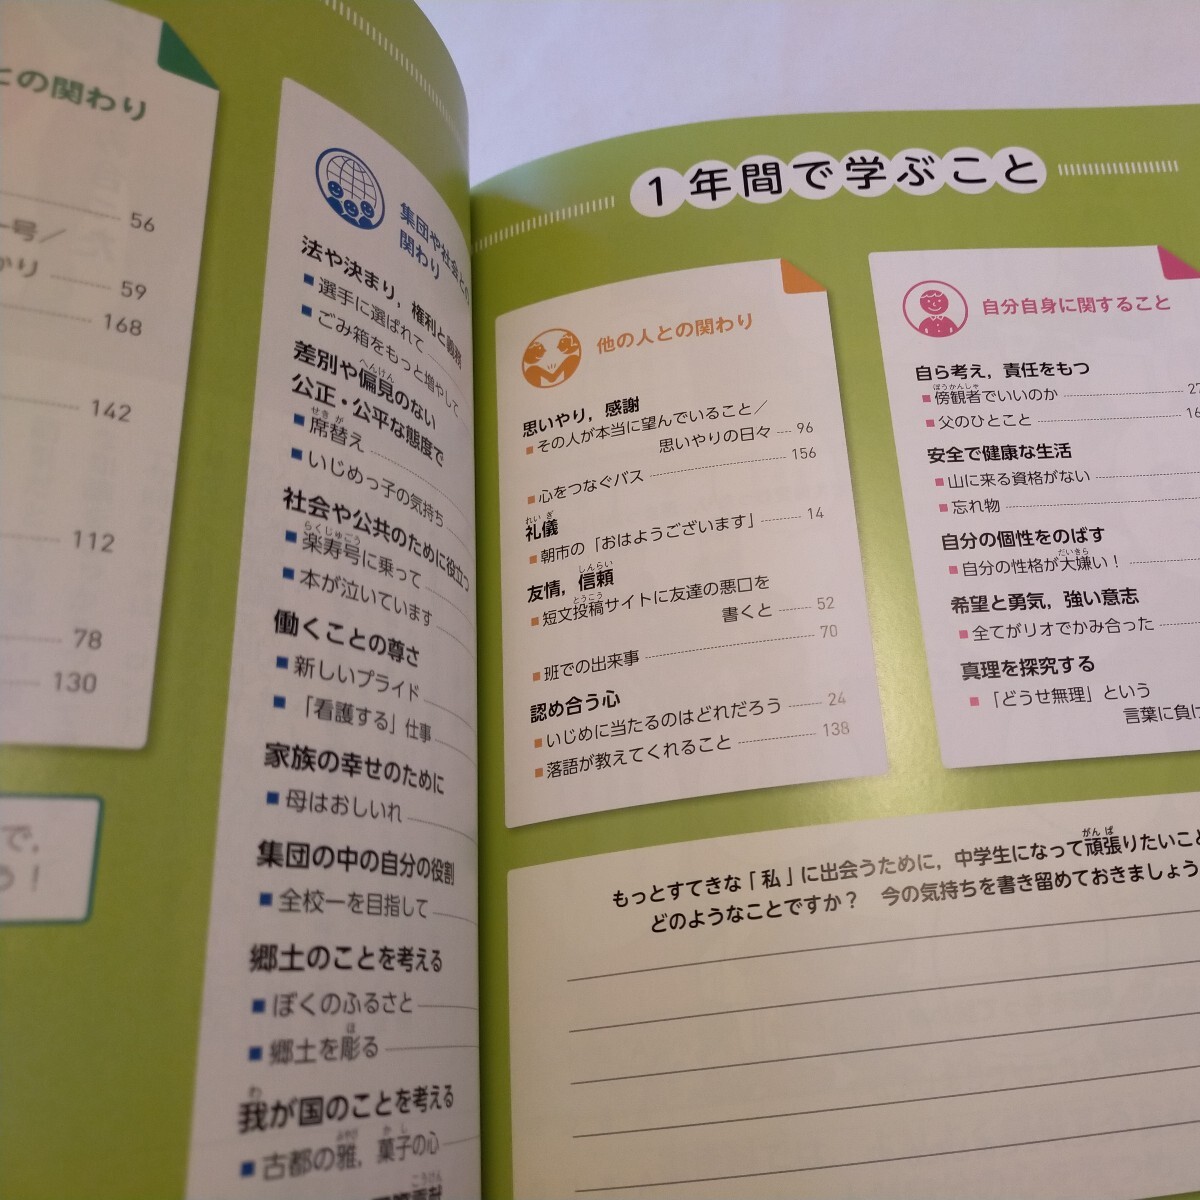 との関わり
56
一号／
59
168
142
112
78
130
で、
！
集団や社会との
関わり
法や決まり，権利と義務
■選手に選ばれて
■ごみ箱をもっと増やして
差別や偏見のない
へんけん
公正・公平な態度で
■席替え
せきが
■いじめっ子の気持ち
社会や公共のために役立つ
■楽寿号に乗って
らくじゅごう
■本が泣いています
働くことの尊さ
■新しいプライド
■「看護する」仕事
家族の幸せのために
■母はおしいれ
集団の中の自分の役割
■全校一を目指して
郷土のことを考える
■ぼくのふるさと
■郷土を彫る
ほ
我が国のことを考える
わ
■古都の雅，菓子の心
みやび　かし
こうけん
1年間で学ぶこと
他の人との関わり
思いやり，感謝
■その人が本当に望んでいること／
思いやりの日々 96
■心をつなぐバス 156
礼儀
れいぎ
■朝市の「おはようございます」 14
友情，信頼
しんらい
■短文投稿サイトに友達の悪口を
とうこう
書くと 52
■班での出来事 70
認め合う心
■いじめに当たるのはどれだろう 24
■落語が教えてくれること 138
自分自身に関すること
自ら考え，責任をもつ
■傍観者でいいのか
ぼうかんしゃ
■父のひとこと
安全で健康な生活
■山に来る資格がない
■忘れ物
自分の個性をのばす
■自分の性格が大嫌い！
だいきら
希望と勇気，強い意志
■全てがリオでかみ合った
真理を探究する
■「どうせ無理」という
言葉に負け
もっとすてきな「私」に出会うために，中学生になって頑張りたいこと
がんば
どのようなことですか？　今の気持ちを書き留めておきましょう